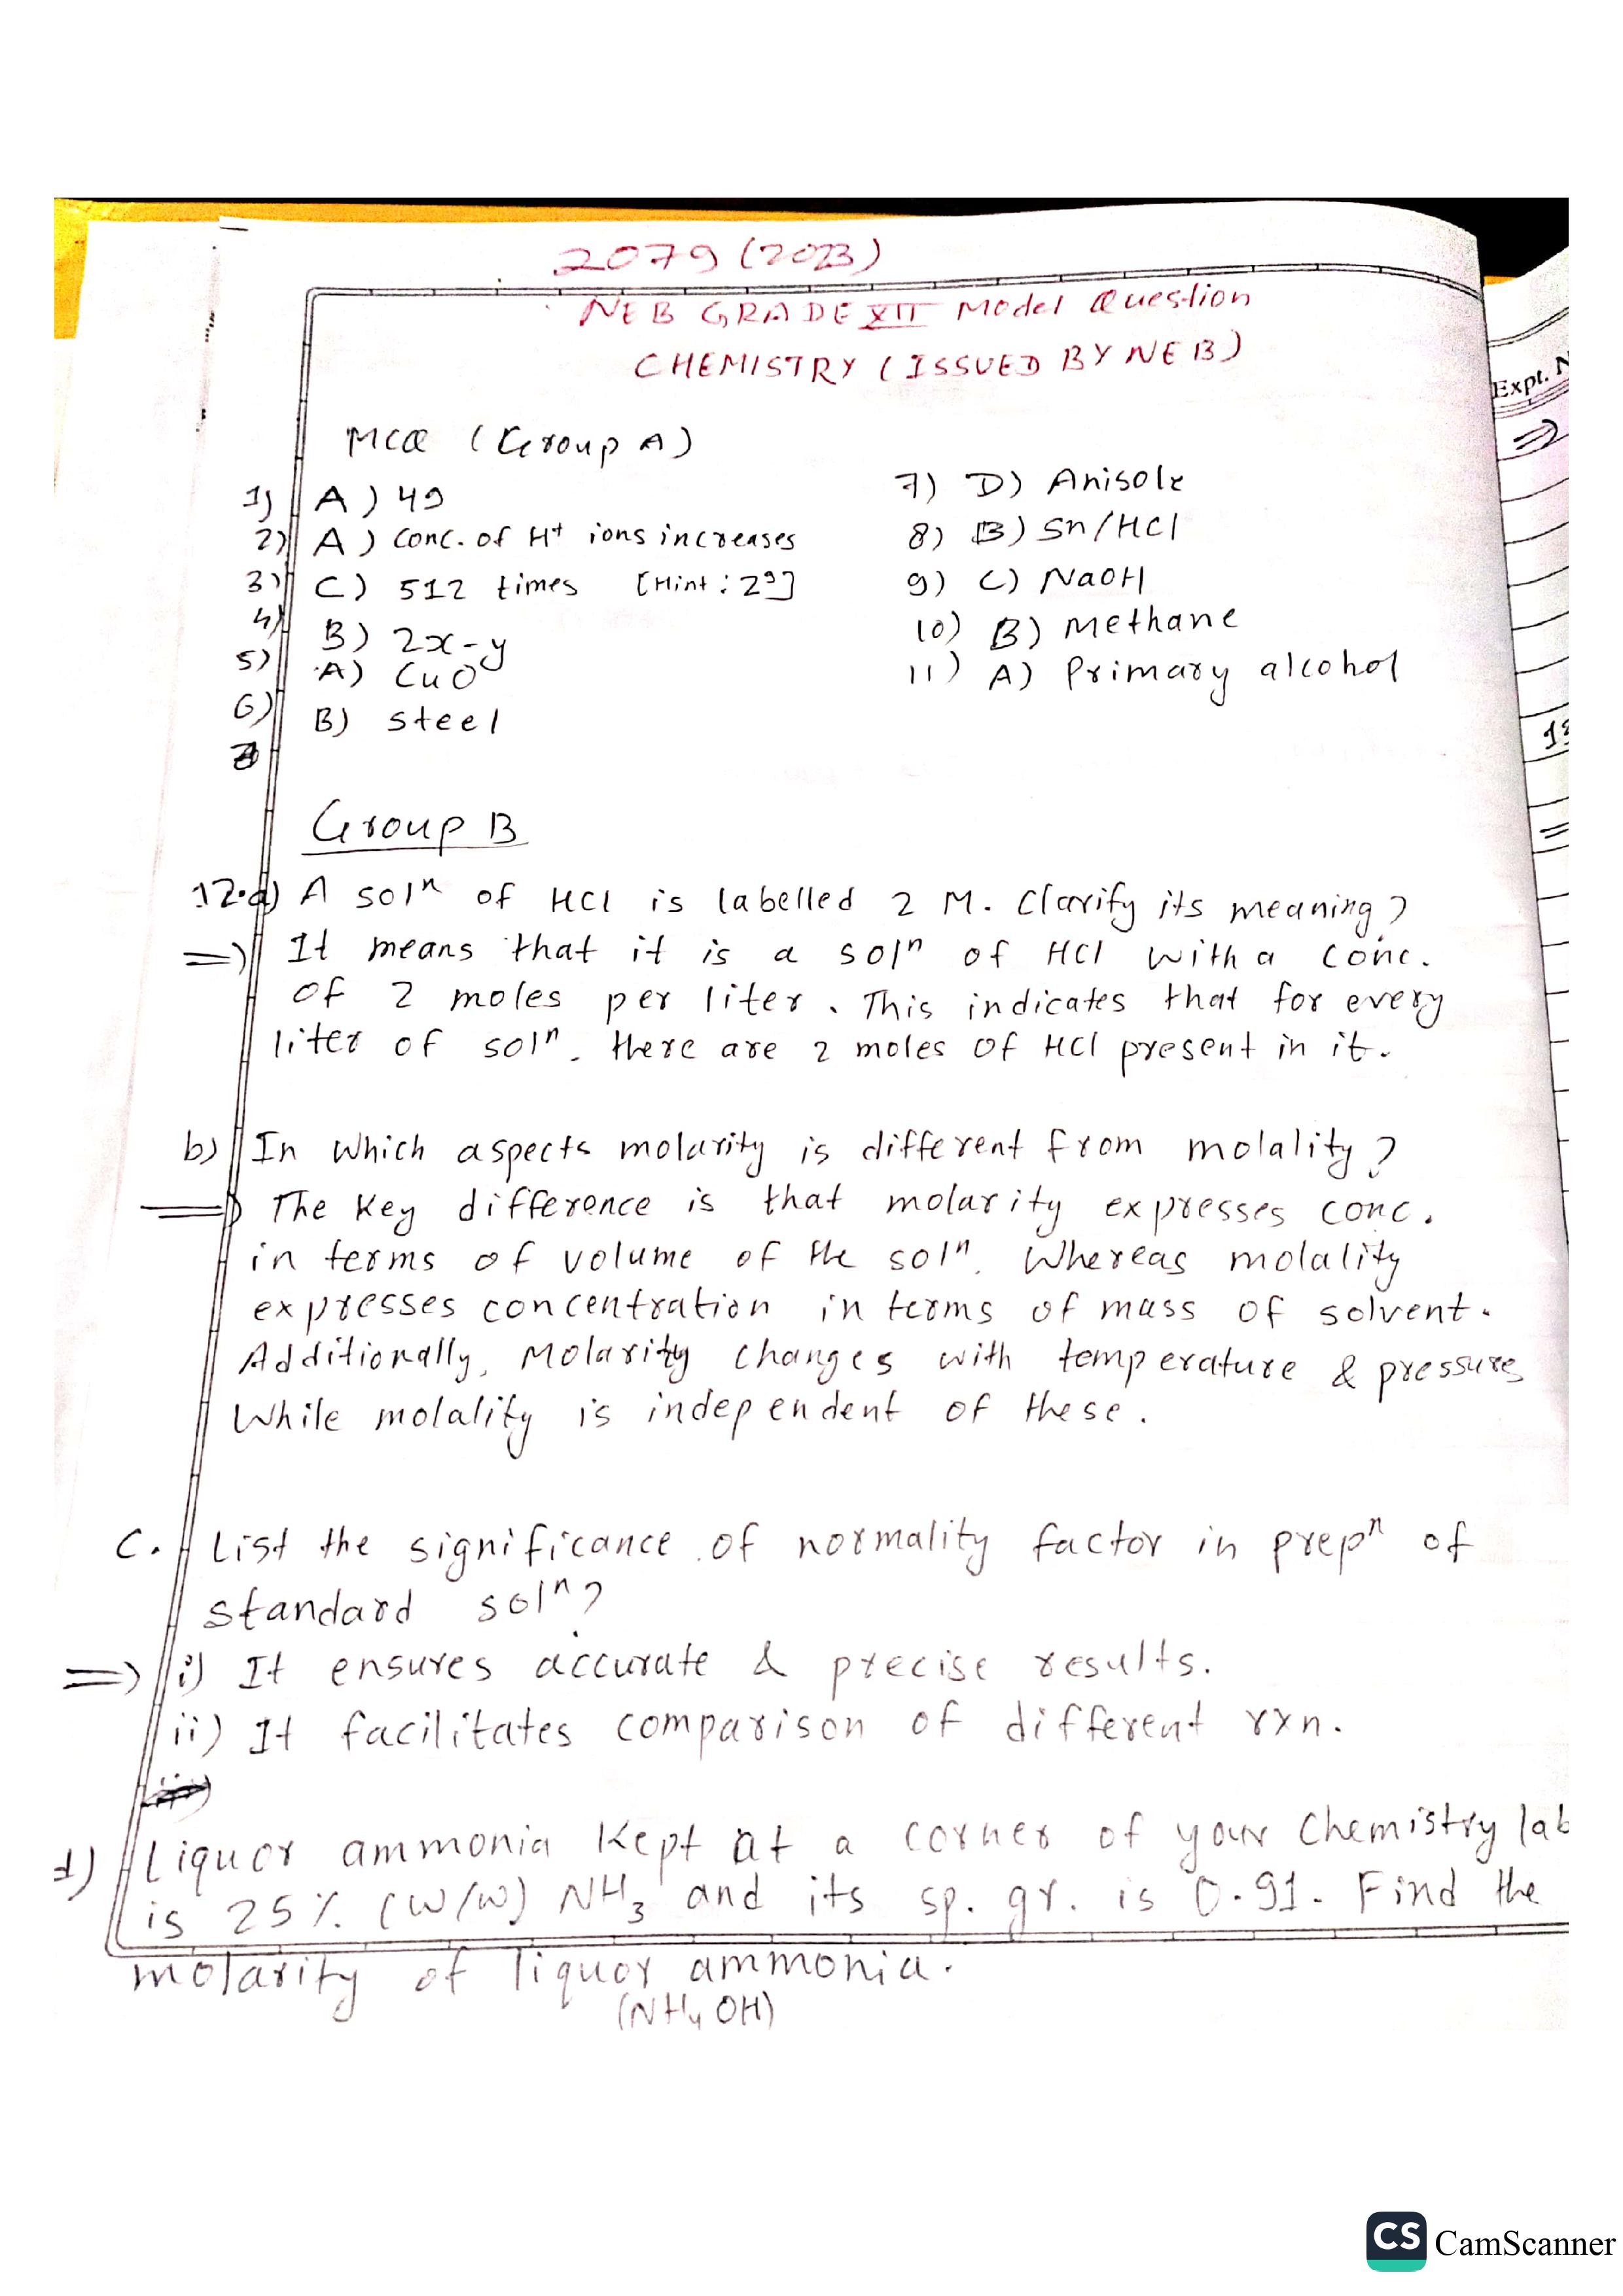 2079 (2023)
NEB GRADE XII Model Question
CHEMISTRY (ISSUED BY NEB)
Expt. N
MCQ (Group A)
1) A) 49
2) A) Conc. of H+ ions increases
3) C) 512 times [Hint: 2⁹]
4) B) 2x-y
5) A) CuO
6) B) steel
7) D) Anisole
8) B) Sn/HCl
9) C) NaOH
10) B) Methane
11) A) Primary alcohol
Group B
12.a) A solⁿ of HCl is labelled 2 M. Clarify its meaning?
=) It means that it is a solⁿ of HCl with a conc.
of 2 moles per liter. This indicates that for every
liter of solⁿ, there are 2 moles of HCl present in it.
b) In which aspects molarity is different from molality?
=) The key difference is that molarity expresses conc.
in terms of volume of the solⁿ. Whereas molality
expresses concentration in terms of mass of solvent.
Additionally, Molarity changes with temperature & pressure
While molality is independent of these.
C. List the significance of normality factor in prepⁿ of
standard solⁿ?
=) i) It ensures accurate & precise results.
ii) It facilitates comparison of different rxn.
d) Liquor ammonia kept at a corner of your Chemistry lab
is 25% (w/w) NH₃ and its sp. gr. is 0.91. Find the
molarity of liquor ammonia.
(NH₄OH)
CS CamScanner